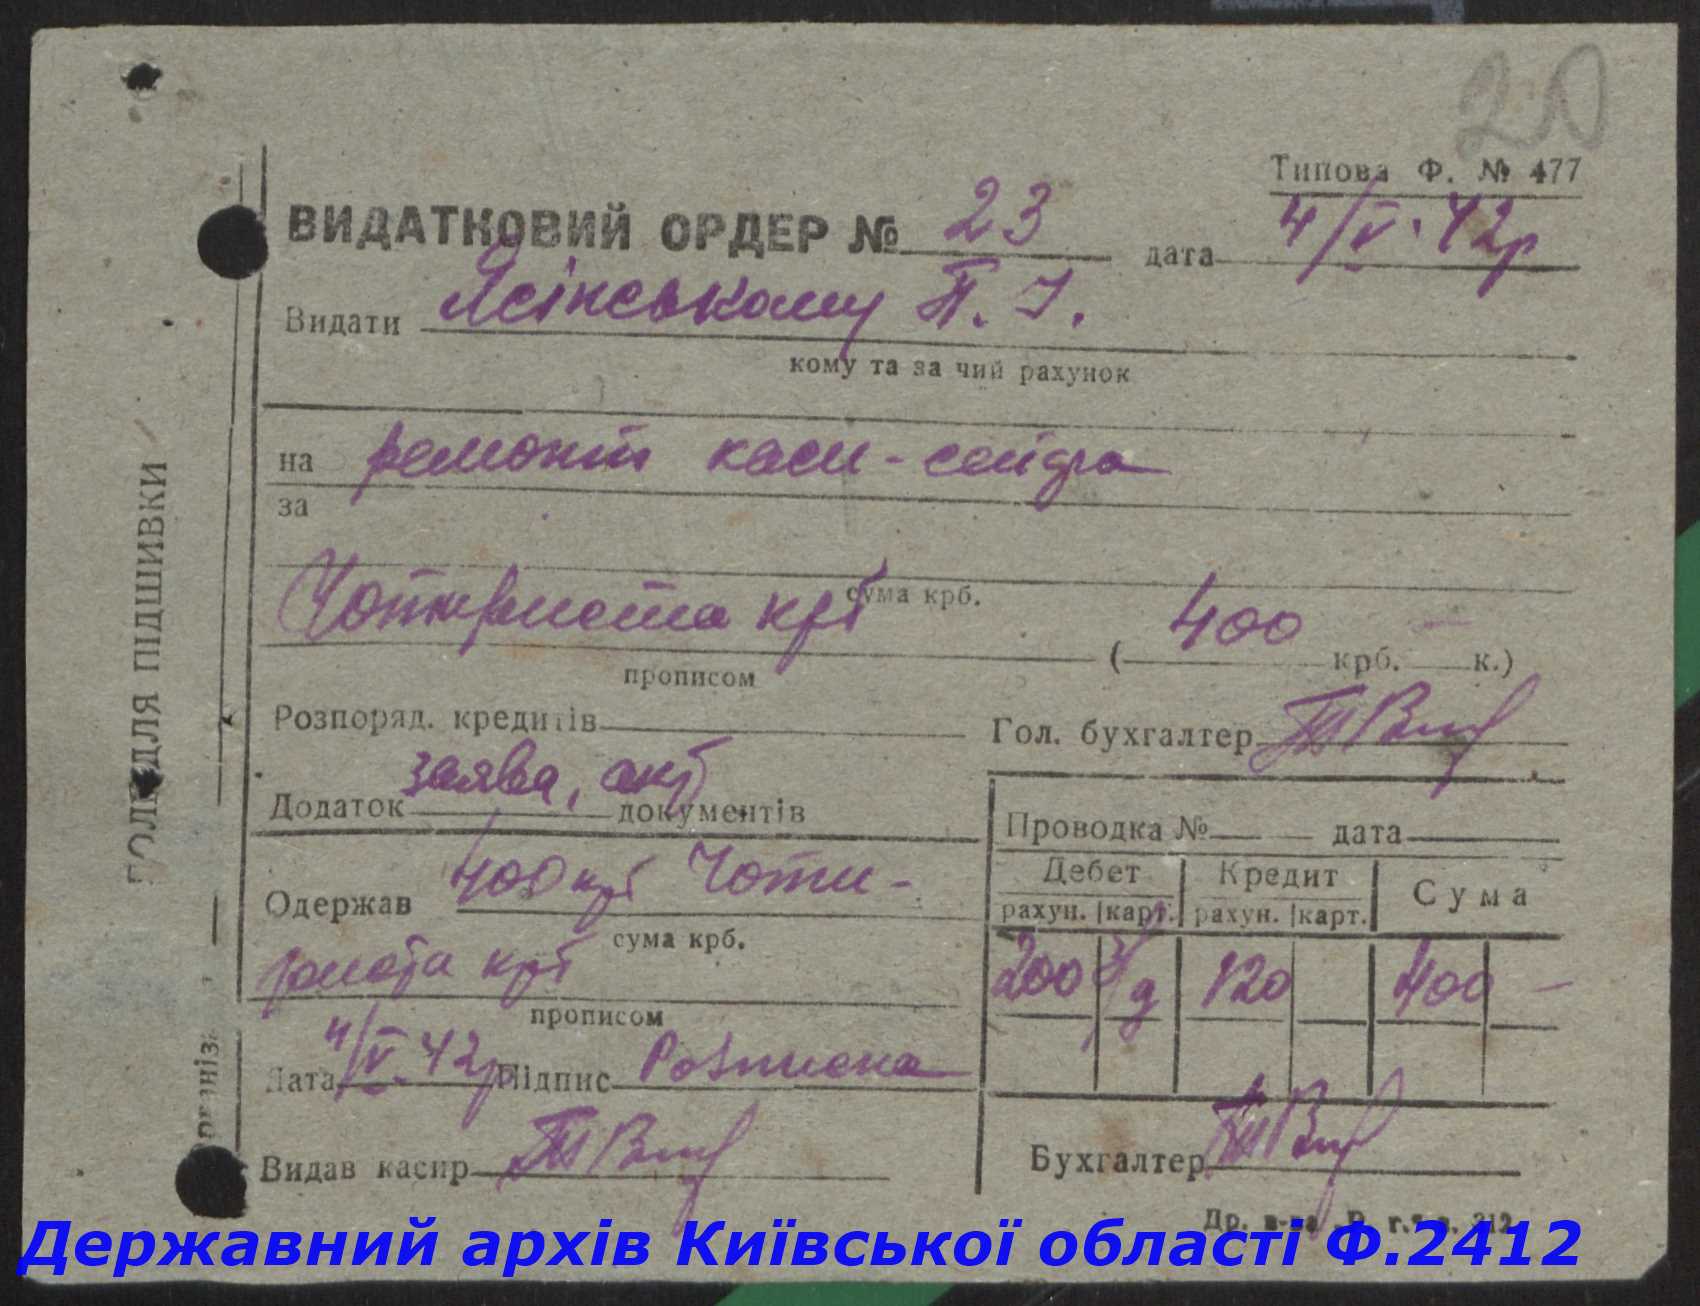 20
Типова Ф. № 477
ВИДАТКОВИЙ ОРДЕР № 23 дата 4/V.42р
Видати Ясінському П. І.
кому та за чий рахунок
на ремонт каси-сейфа
за
сума крб.
Чотириста крб (400 крб. — к.)
прописом
Розпоряд. кредитів Гол. бухгалтер
Додаток заява, акт документів
Проводка № дата
Дебет Кредит Сума
рахун. карт. рахун. карт.
Одержав 400 крб Чоти-
сума крб.
200 120 400 —
риста крб
прописом
Дата 4/V.42р Підпис Розписка
Видав касир Бухгалтер
ПОЛЕ ДЛЯ ПІДШИВКИ
Державний архів Київської області Ф.2412